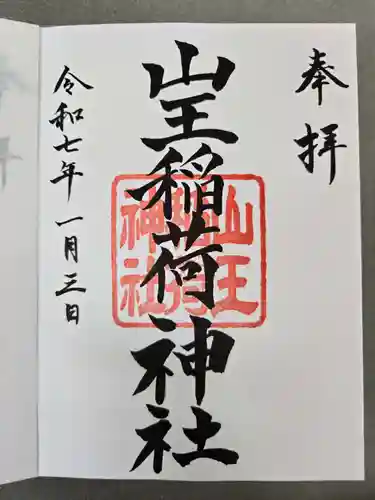 奉拝
山王稲荷神社
山王稲荷神社
令和七年一月三日